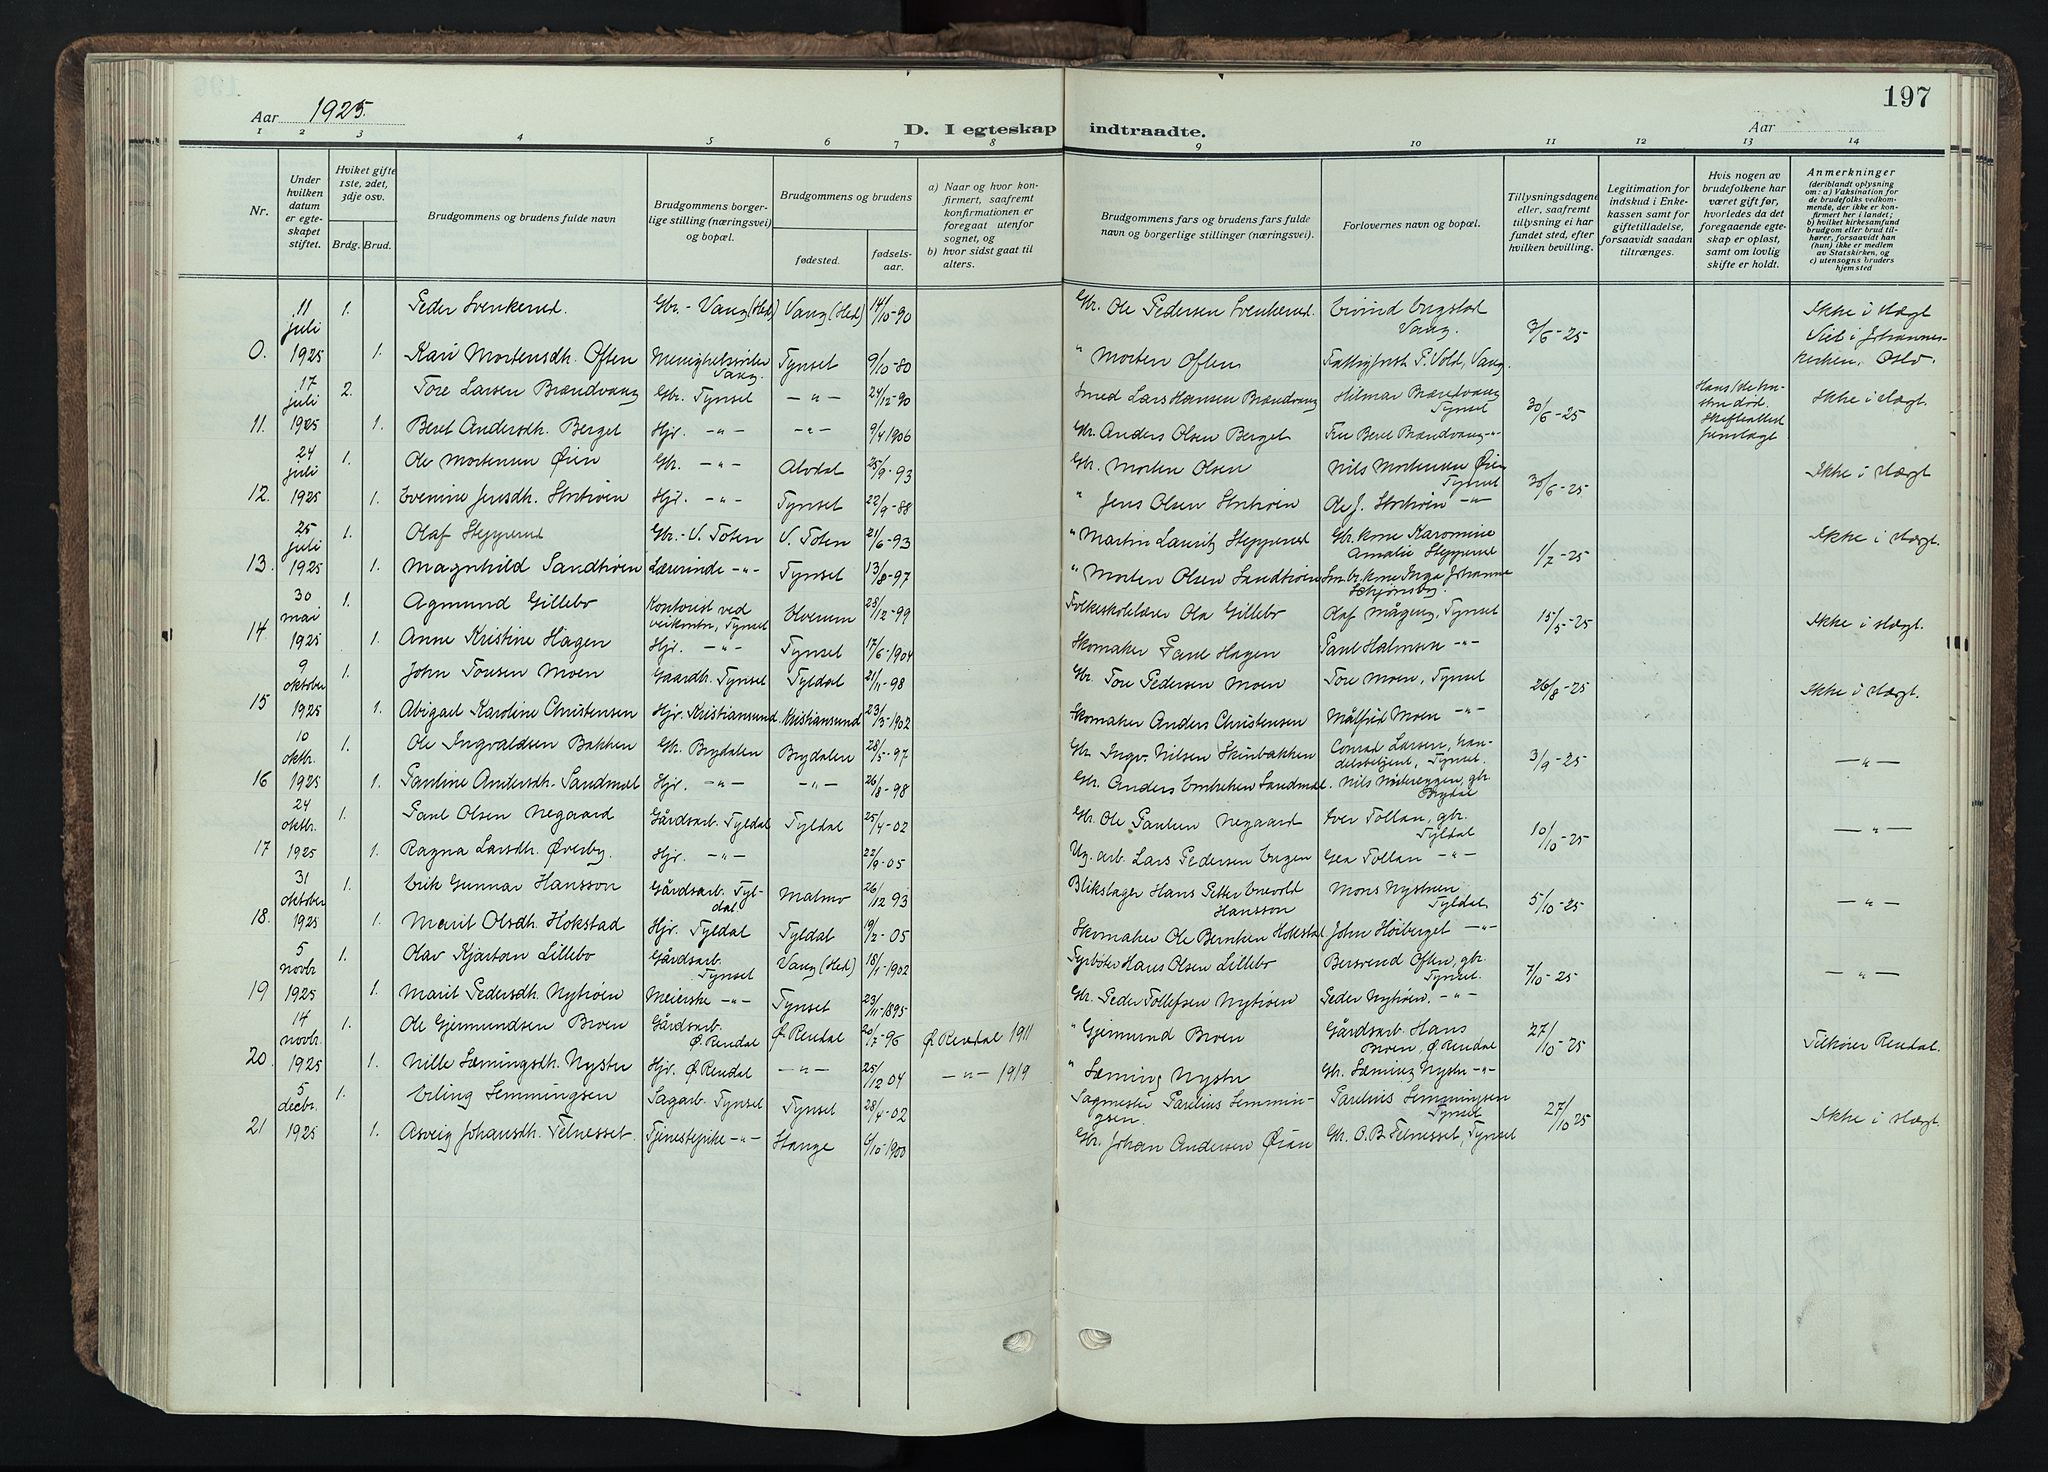 197
Aar 1925.
Aar
D. I egteskap indtraadte.
1 2 3 4 5 6 7 8 9 10 11 12 13 14
Nr.
Under hvilken datum er egteskapet stiftet.
Hviket gifte 1ste, 2det, 3dje osv.
Brdg. Brud.
Brudgommens og brudens fulde navn
Brudgommens borgerlige stilling (næringsvei) og bopæl.
Brudgommens og brudens
fødested. fødselsaar.
a) Naar og hvor konfirmert, saafremt konfirmationen er foregaat utenfor sognet, og
b) hvor sidst gaat til alters.
Brudgommens fars og brudens fars fulde navn og borgerlige stillinger (næringsvei).
Forlovernes navn og bopæl.
Tillysningsdagene eller, saafremt tillysning ei har fundet sted, efter hvilken bevilling.
Legitimation for indskud i Enkekassen samt for giftetilladelse, forsaavidt saadan tiltrænges.
Hvis nogen av brudefolkene har været gift før, hvorledes da det foregaaende egteskap er opløst, samt om lovlig skifte er holdt.
Anmerkninger
(deriblandt oplysning om: a) Vaksination for de brudefolks vedkommende, der ikke er konfirmert her i landet; b) hvilket kirkesamfund brudgom eller brud tilhører, forsaavidt han (hun) ikke er medlem av Statskirken, og c) utensogns bruders hjemsted
11 juli 1. Peder Svenkerud. Gbr. - Vang (Hed) Vang (Hed) 14/10-90 Gbr. Ole Pedersen Svenkerud. Eivind Engstad Vang. 3/6-25 Ikke i slægt
0. 1925 1. Kari Mortensdh. Often Menighetssøster Vang. Tynset 9/10-80 " Morten Often P. Vold, Vang. Viet i Johanneskirken, Oslo.
17 juli 2. Tore Larsen Brændvang Gbr. Tynset - " - 24/12-90 Smed Lars Hansen Brændvang Hilmar Brændvang Tynset 30/6-25 Ikke i slægt.
11. 1925 1. Beret Andersdh. Berget Hjr. - " - - " - 9/4 1906 Gbr. Anders Olsen Berget Fru Beret Brændvang - " -
24 juli 1. Ole Mortensen Øien Gbr. - " - Alvdal 25/9-93 Gbr. Morten Olsen Nils Mortensen Øien Tynset 30/6-25 Ikke i slægt
12. 1925 1. Evenine Jensdh. Stortrøen Hjr. - " - Tynset 22/9-88 " Jens Olsen Stortrøen Ole J. Stortrøen - " -
25 juli 1. Olaf Stepperud Gbr. - V. Toten V. Toten 21/6-93 " Martin Lauritz Stepperud Gbr. kone Karomine Amalie Stepperud 1/7-25 Ikke i slægt.
13. 1925 1. Magnhild Sandtrøen Lærerinde - " - Tynset 13/8-97 " Morten Olsen Sandtrøen kone Inga Johanne
30 mai 1. Agmund Gillebo Kontorist ved veikontr., Tynset Elverum 28/12-99 Folkeskolelærer Ola Gillebo Olaf Mågeng, Tynset 15/5-25 Ikke i slægt.
14. 1925 1. Anne Kristine Hagen Hjr. - " - Tynset 17/6-1904 Skomaker Paul Hagen Paul Halmsen - " -
9 oktober 1. John Toresen Moen Gaardb. Tynset Tyldal 21/11-98 Gbr. Tore Pedersen Moen Tore Moen, Tynset 26/8-25 Ikke i slægt.
15 1925 1. Abigael Karoline Christensen Hjr. Kristiansund Kristiansund 23/3-1902 Skomaker Anders Christensen Målfrid Moen - " -
10 oktbr. 1. Ole Ingvaldsen Bakken Gbr. Brydalen Brydalen 28/5-97 Gbr. Ingv. Nilsen Skinbakken Conrad Larsen, handelsbetjent, Tynset. 3/9-25 - " -
16 1925 1. Pauline Andersdh. Sandmæl Hjr. - " - - " - 26/8-98 Gbr. Anders Embretsen Sandmæl. Nils gbr. Brydal
24 oktbr. 1. Paul Olsen Negaard Gårdsarb. Tyldal Tyldal 25/4-02 Gbr. Ole Paulsen Negaard Iver Tollan, gbr. Tyldal 10/10-25 - " -
17 1925 1. Ragna Larsdh. Øverby. Hjr. - " - 22/9-05 arb. Lars Pedersen Engen Gea Tollan - " -
31 oktober 1. Erik Gunnar Hansson Gårdsarb. Tyldal. Malmø 26/12 93 Blikslager Hans Petter Enevold Hansson Mons Nystuen Tyldal 5/10-25 - " -
18. 1925 1. Marit Olsdh. Hokstad Hjr. Tyldal Tyldal 19/2-05 Skomaker Ole Berntsen Hokstad John Høiberget - " -
5 novbr 1. Olav Kjartan Lillebo Gårdsarb. Tynset Vang (Hed) 18/1-1902 Fyrbøter Hans Olsen Lillebo Bersvend Often, gbr. Tynset. 7/10-25 - " -
19 1925 1. Marit Pedersdh. Nytrøen Meierske - " - Tynset 23/11-1895 Gbr. Peder Tollefsen Nytrøen Peder Nytrøen. - " -
14 novbr. 1. Ole Gjermundsen Broen Gårdsarb. Ø. Rendal Ø. Rendal 20/7-96 Ø. Rendal 1911 " Gjermund Broen Gårdsarb. Hans Broen, Ø. Rendal 27/10-25 Tilhører Rendal.
20. 1925 1. Nille Læmingsdh. Nystu Hjr. Ø. Rendal - " - 25/12 04 - " - 1919 " Læming Nystu Gbr. Læming Nystu - " -
5 decbr. 1. Erling Semmingsen Sagarb. Tynset Tynset 28/4-02 Sagmester Paulius Semmingsen. Paulius Semmingsen Tynset 27/10 25 Ikke i slægt.
21 1925 1. Asveig Johansdh. Telnesset. Tjenestepike - " - Stange 6/10-1900 Gbr. Johan Andersen Øian Gbr. O. B. Telnesset, Tynset